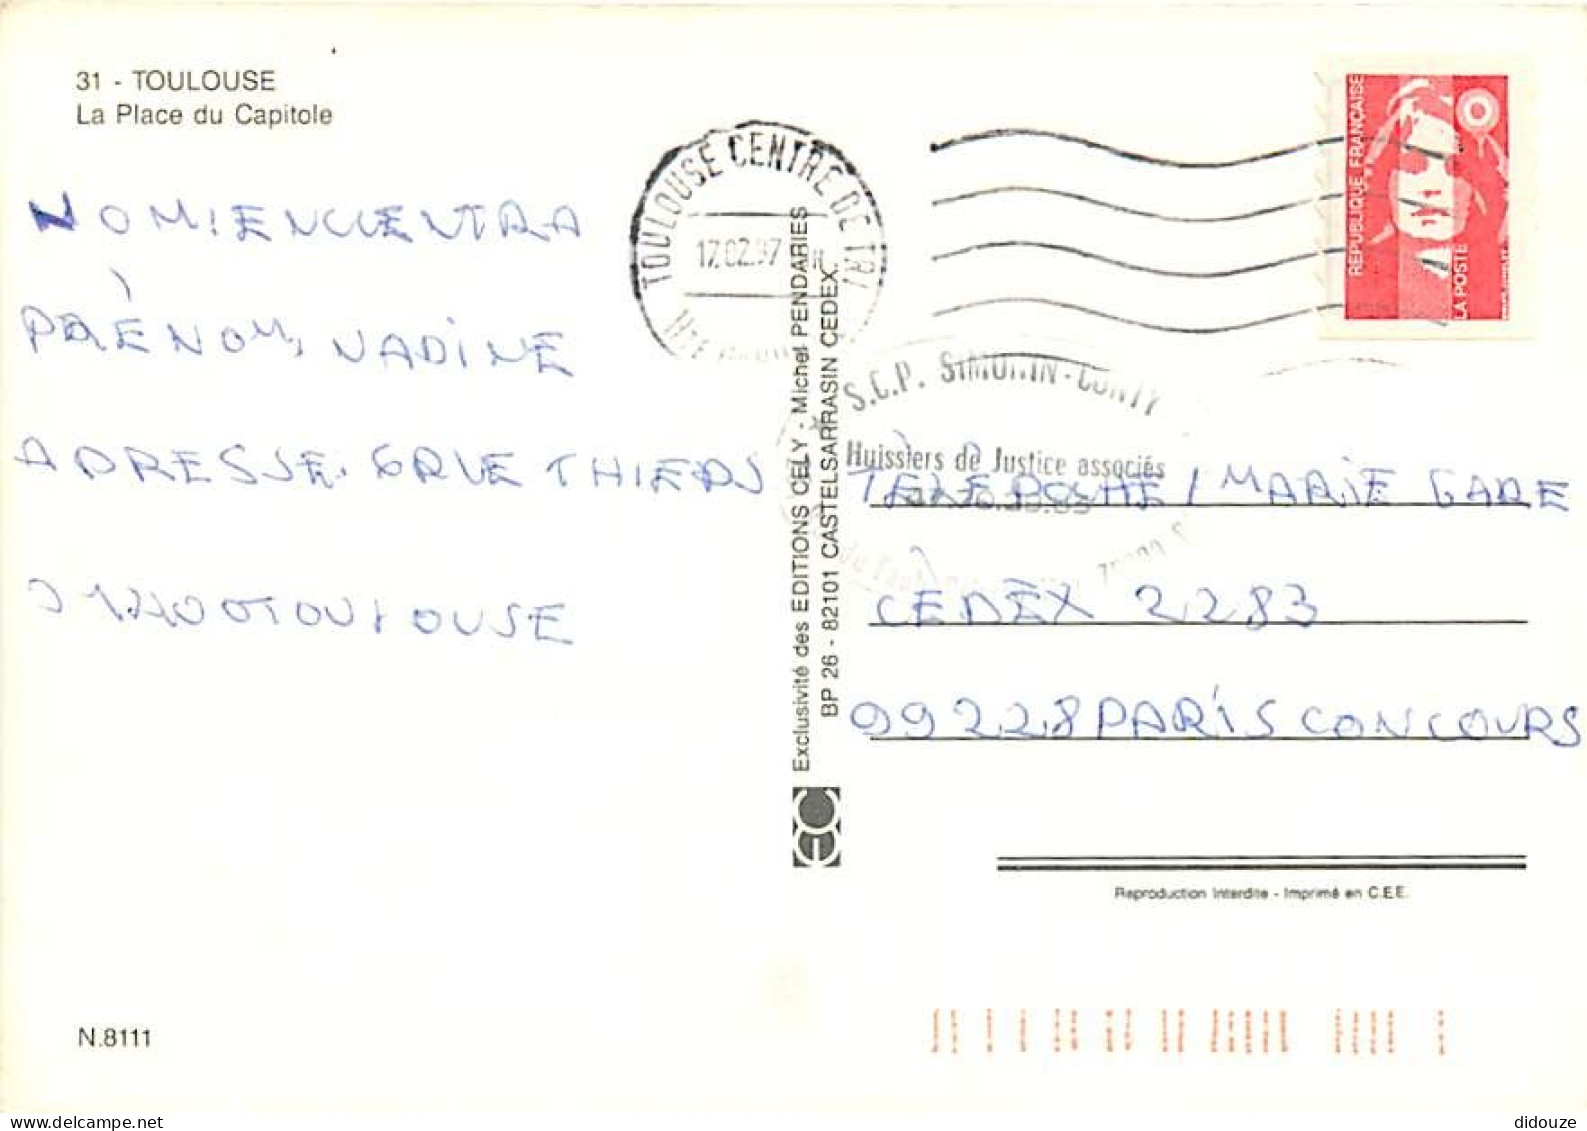 31 - TOULOUSE
La Place du Capitole
NOM: ENCUENTRA
PRÉNOM, NADINE
ADRESSE. 6 RUE THIERS
TOULOUSE
TOULOUSE CENTRE DE TRI
17.02.97
Exclusivité des EDITIONS CELY - Michel PENDARIES
BP 26 - 82101 CASTELSARRASIN CEDEX.
REPUBLIQUE FRANÇAISE
LA POSTE
S.C.P. SIMONIN - CONTY
Huissiers de Justice associés
TELE POCHE / MARIE GARE
CEDEX 2283
99228 PARIS CONCOURS
Reproduction Interdite - Imprimé en C.E.E.
N.8111
didouze